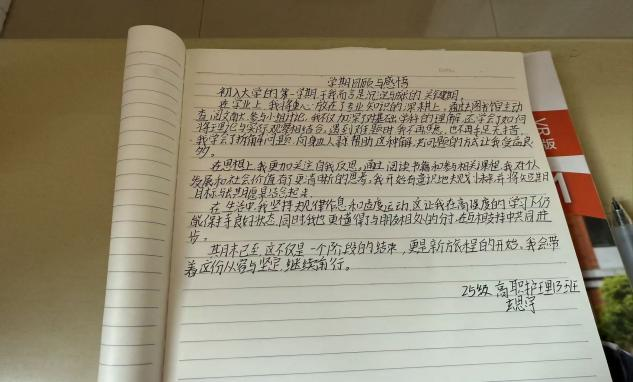 学期回顾与感悟
初入大学的第一学期,于我而言是沉淀与成长的关键期。
在学业上,我将重心放在了专业知识的深耕上,通过去图书馆主动
查阅文献、参与小组讨论,我不仅加深了对基础学科的理解,还学会了如何
将理论与实际观察相结合。遇到难题时我不再焦,也不再手足无措,
我学会了拆解问题、向身边人寻求帮助,这种解决问题的方式让我受益良
多。
在思想上,我更加关注自我反思。通过阅读书籍和参与相关课程,我对个人
发展和社会价值有了更清晰的思考。我开始有意识地规划小目标,并将短期
目标与长期愿景结合起来。
在生活中,我坚持规律作息和适度运动,这让我在高强度的学习下仍
能保持良好状态,同时我也更懂得了与朋友相处的分寸,在互相支持中共同进
步。
期末已至,这不仅是一个阶段的结束,更是新旅程的开始。我会带
着这份从容与坚定,继续前行。
25级高职护理13班
VR